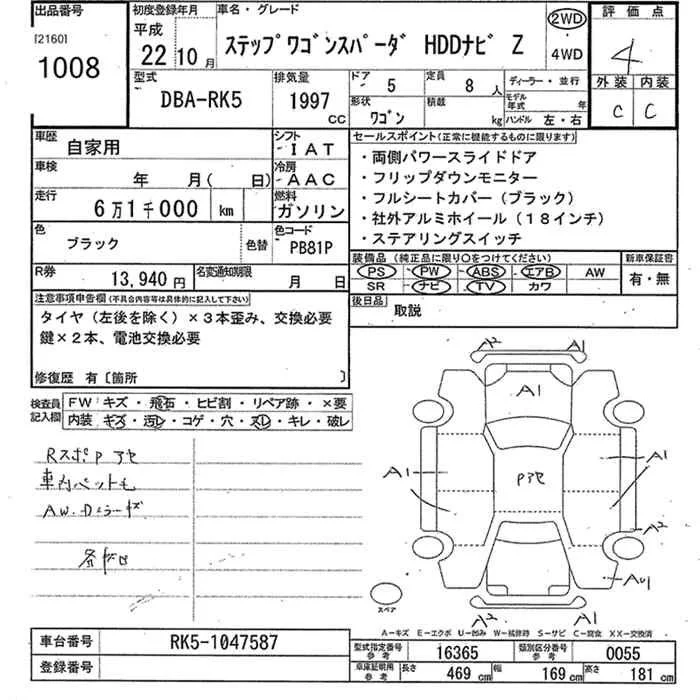 出品番号
[2160]
1008
初度登録年月
平成
22 10 月
車名・グレード
ステップワゴンスパーダ HDDナビ Z
2WD
・
4WD
評価点
4
外装 内装
C C
型式
DBA-RK5
排気量
1997
CC
ドア 5
定員 8 人
形状
ワゴン
積載
kg
ディーラー・並行
モデル年式 年
ハンドル 左・右
車歴
自家用
シフト
IAT
車検
年 月( 日)
冷房
AAC
走行
6万1千000 km
燃料
ガソリン
色
ブラック
色替
色コード
PB81P
R券
13,940円
名変通知期限
月 日
セールスポイント(正常に機能するものに限ります)
・両側パワースライドドア
・フリップダウンモニター
・フルシートカバー(ブラック)
・社外アルミホイール(18インチ)
・ステアリングスイッチ
装備品 (純正品に限り○をつけてください)
PS PW ABS エアB AW
SR ナビ TV カワ
新車保証書
有・無
後日品
取説
注意事項申告欄(不具合内容等は具体的に記入して下さい)
タイヤ(左後を除く)×3本歪み、交換必要
鍵×2本、電池交換必要
修復歴 有〔箇所 〕
検査員
記入欄
FW キズ・飛石・ヒビ割・リペア跡・×要
内装 キズ・汚レ・コゲ・穴・スレ・キレ・破レ
RスポPアセ
AW.
A2 A1
A1
A1 Pアセ A1
A2
A2 A1
スペア
A－キズ E－エクボ U－凹み W－補修跡 S－サビ C－腐食 XX－交換済
車台番号
RK5-1047587
登録番号
型式指定番号
参考
16365
類別区分番号
参考
0055
車庫証明用
参考
長さ 469 cm 幅 169 cm 高さ 181 cm